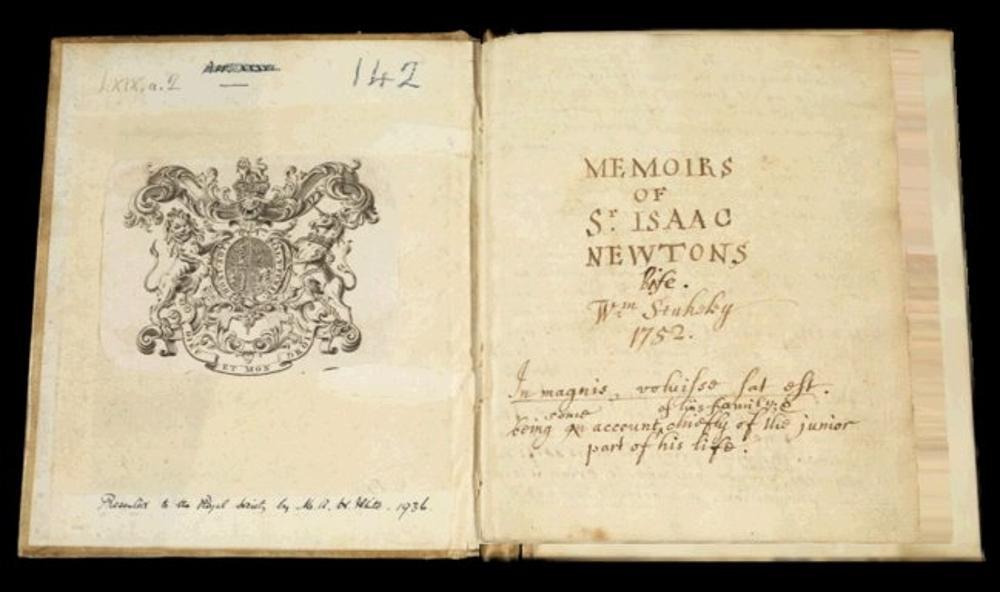 LXIX.a.2
142
DIEU ET MON DROIT
Presented to the Royal Society by Mr. A. H. White. 1936.
MEMOIRS
OF
Sr. ISAAC
NEWTONS
life.
Wm Stukeley
1752.
In magnis, voluisse sat est.
being some account, of his family; chiefly of the junior
part of his life.